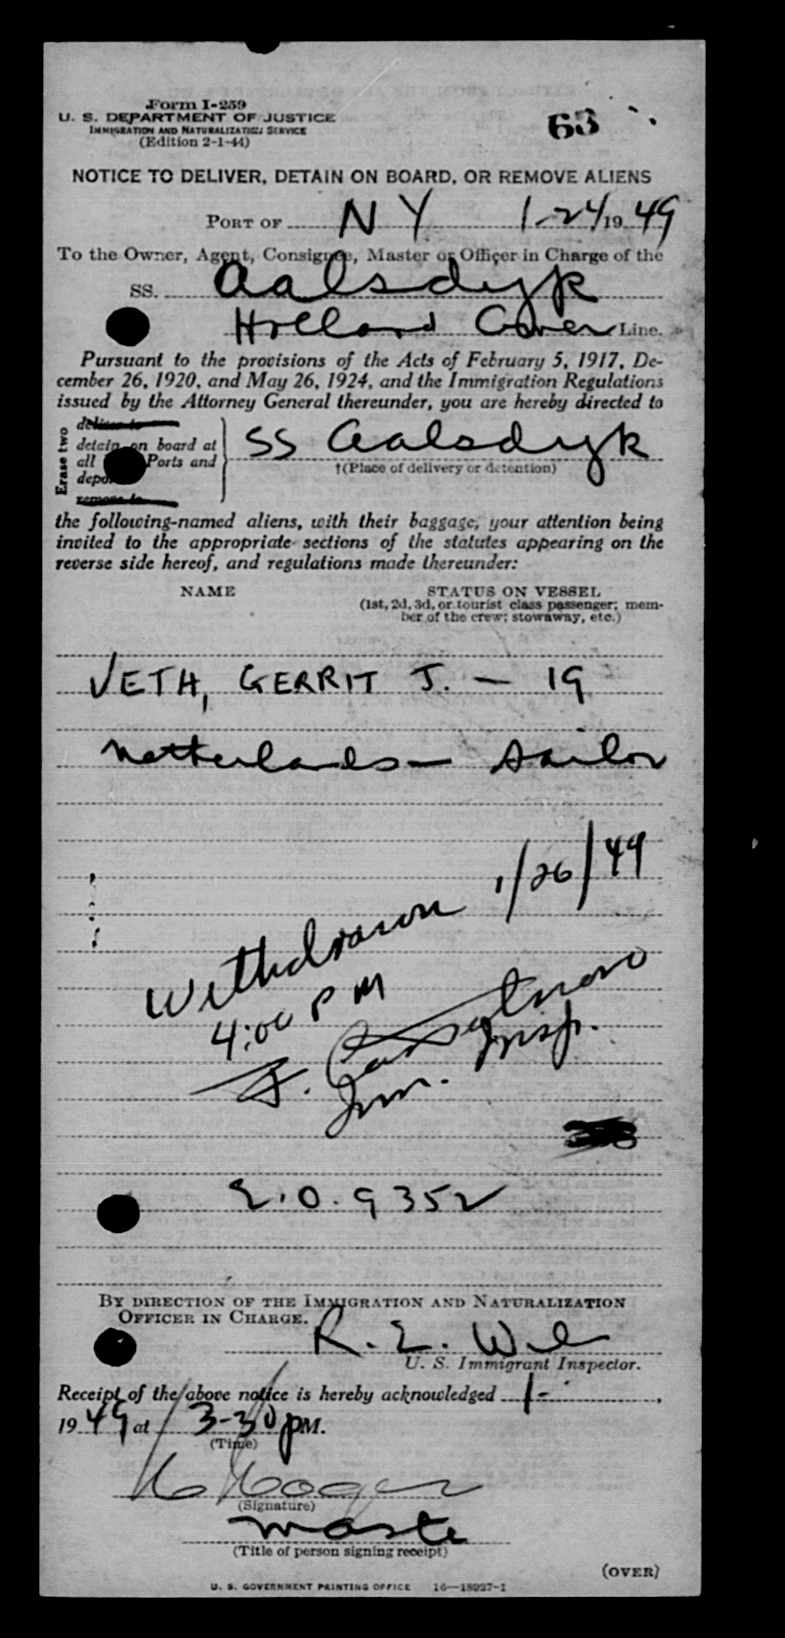 Form I-259
U. S. DEPARTMENT OF JUSTICE
IMMIGRATION AND NATURALIZATION SERVICE
(Edition 2-1-44)
63
NOTICE TO DELIVER, DETAIN ON BOARD, OR REMOVE ALIENS
PORT OF NY 1-24 1949
To the Owner, Agent, Consignee, Master or Officer in Charge of the
SS. Aalsdyk
Holland Amer Line.
Pursuant to the provisions of the Acts of February 5, 1917, De-
cember 26, 1920, and May 26, 1924, and the Immigration Regulations
issued by the Attorney General thereunder, you are hereby directed to
Erase two
deliver to
detain on board at
all Ports and
depo
remove to
SS Aalsdyk
†(Place of delivery or detention)
the following-named aliens, with their baggage, your attention being
invited to the appropriate sections of the statutes appearing on the
reverse side hereof, and regulations made thereunder:
NAME STATUS ON VESSEL
(1st, 2d, 3d, or tourist class passenger; mem-
ber of the crew; stowaway, etc.)
VETH, GERRIT J. — 19
Netherlands — Sailor
Withdrawn 1/26/49
4:00 PM
Imm. Insp.
E.O. 9352
BY DIRECTION OF THE IMMIGRATION AND NATURALIZATION
OFFICER IN CHARGE.
R. E.
U. S. Immigrant Inspector.
Receipt of the above notice is hereby acknowledged 1-,
1949 at 3-30 PM.
(Time)
(Signature)
Maste
(Title of person signing receipt)
(OVER)
U. S. GOVERNMENT PRINTING OFFICE 16—18927-1